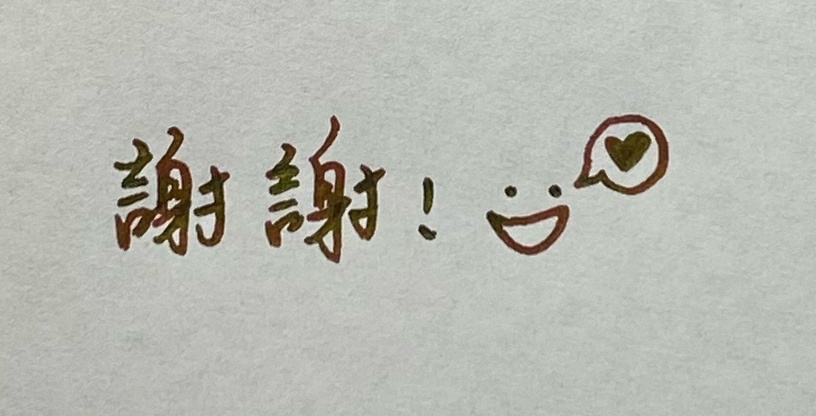 謝謝!